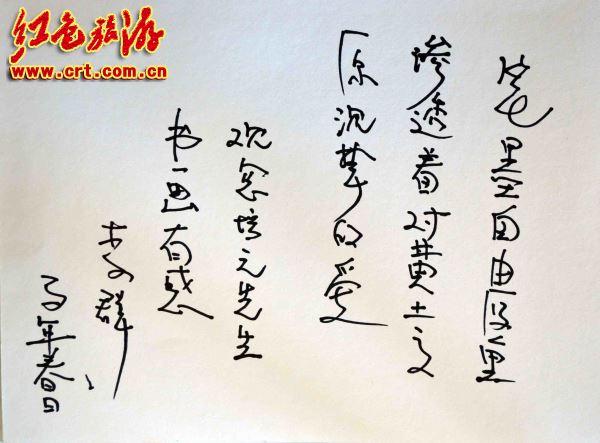 红色旅游
www.crt.com.cn
笔墨自由
渗透着对黄土高
原沉挚的爱
观培元先生
书画有感
群
马年春日